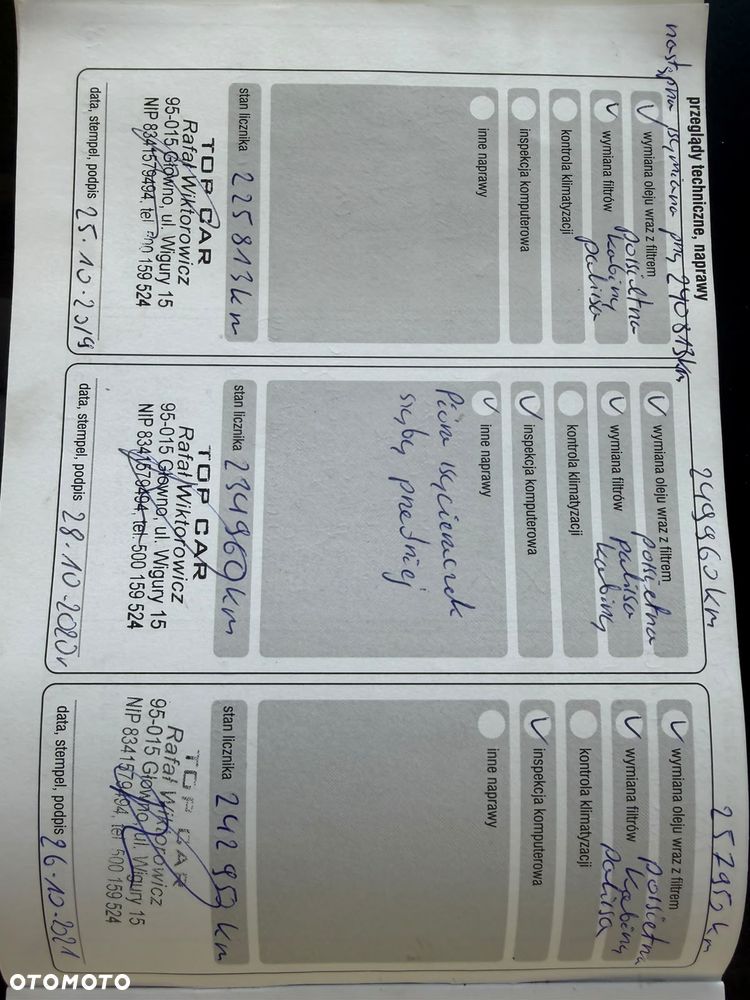 przeglądy techniczne, naprawy
następna wymiana przy 240813km
wymiana oleju wraz z filtrem
wymiana filtrów
powietrza
kabiny
paliwa
kontrola klimatyzacji
inspekcja komputerowa
inne naprawy
stan licznika 225813km
TOP CAR
Rafał Wiktorowicz
95-015 Głowno, ul. Wigury 15
NIP 8341579494, tel. 500 159 524
data, stempel, podpis 25.10.2019
249960km
wymiana oleju wraz z filtrem
wymiana filtrów
powietrza
paliwa
kabiny
kontrola klimatyzacji
inspekcja komputerowa
inne naprawy
Pióra wycieraczek
szyby przedniej
stan licznika 234960km
TOP CAR
Rafał Wiktorowicz
95-015 Głowno, ul. Wigury 15
NIP 8341579494, tel. 500 159 524
data, stempel, podpis 28.10.2020r
257950km
wymiana oleju wraz z filtrem
wymiana filtrów
powietrza
kabiny
paliwa
kontrola klimatyzacji
inspekcja komputerowa
inne naprawy
stan licznika 242950 km
TOP CAR
Rafał Wiktorowicz
95-015 Głowno, ul. Wigury 15
NIP 8341579494, tel. 500 159 524
data, stempel, podpis 26.10.2021
OTOMOTO